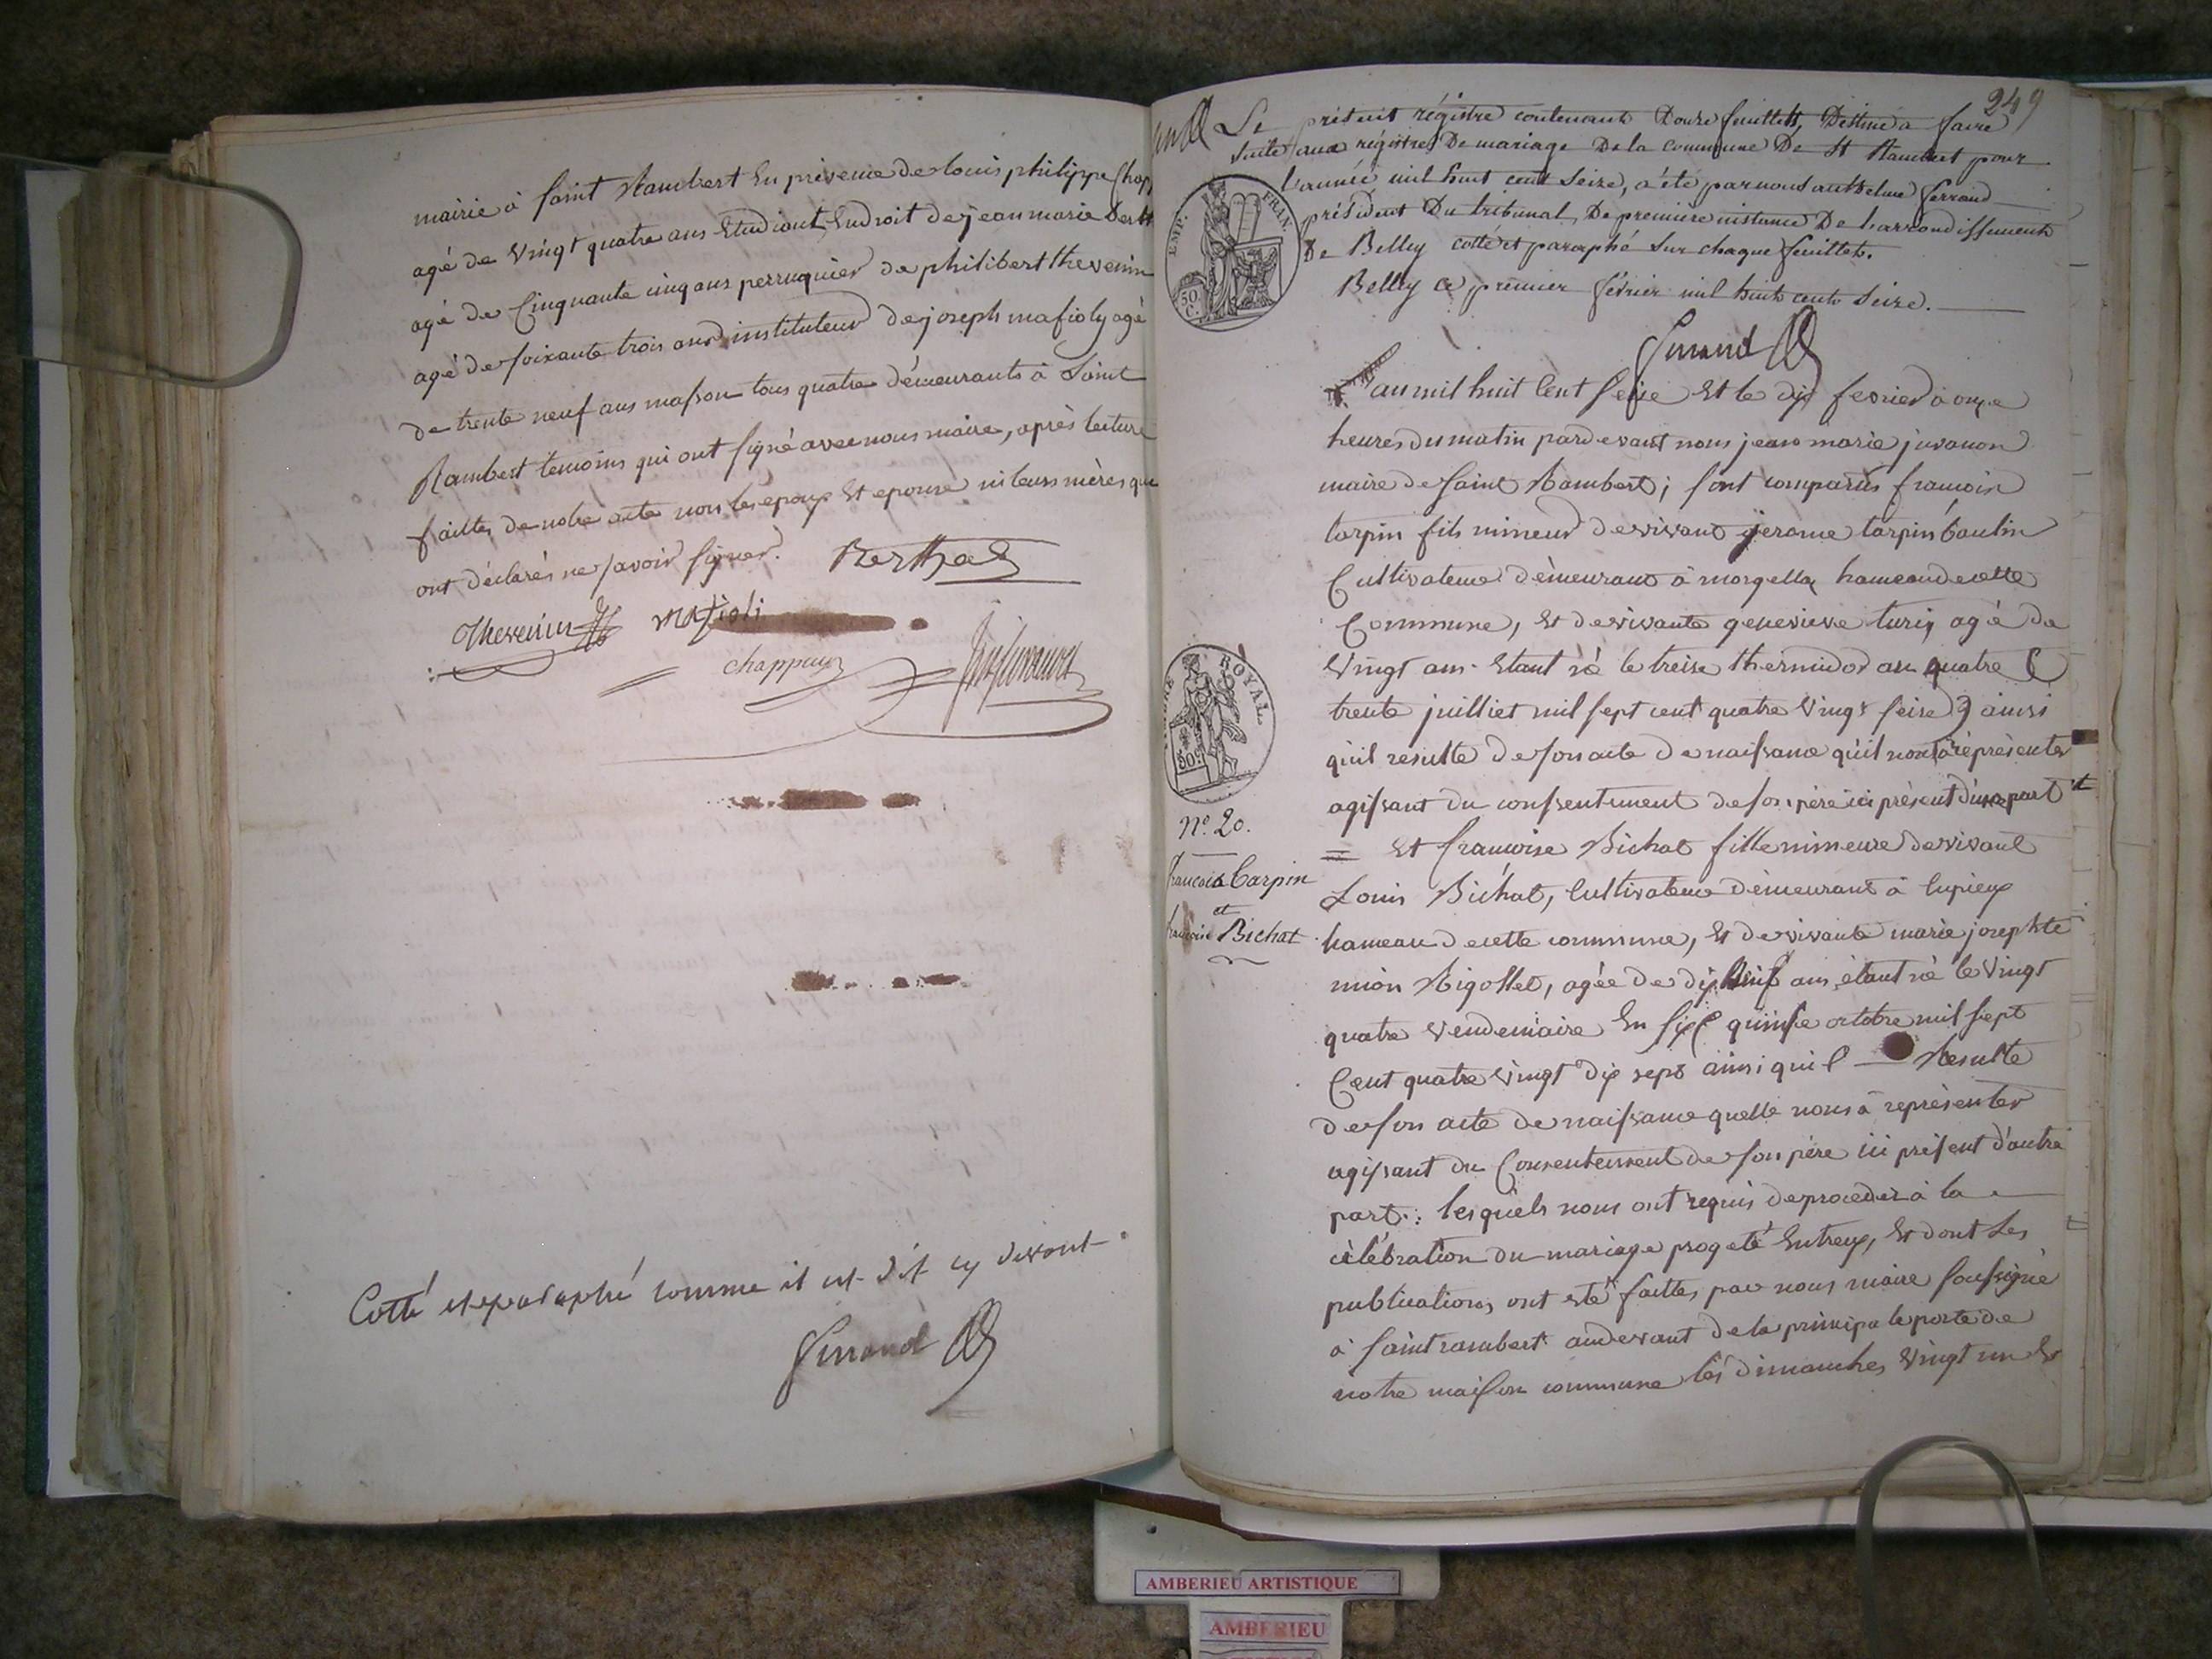 mairie à saint Rambert En présence de louis philippe Chap
agé de Vingt quatre ans Etudiant Endroit de jean marie Berth
agé de Cinquante cinq ans perruquier de philibert thevenin
agé de soixante trois ans instituteur de joseph mafioly agé
de trente neuf ans masson tous quatre démeurants à Saint
Rambert temoins qui ont signé avec nous maire, après lecture
faittes de notre acte non les epoux Et epouse ni leurs mères que
ont déclarés ne savoir signer. Berthet
Thevenin Mafioli
chappuy
Cotté et paraphé comme il est dit cy devant
ferrand
249
Le présent régistre contenant Douze feuillets, Destiné a faire
Suite aux régistres De mariage De la commune De St Rambert pour
l'année mil huit cent seize, a été par nous anthelme ferrand
président Du tribunal De premiere instance De l'arrondissement
De Belley cotté et paraphé sur chaque feuillets.
Belley ce premier février mil huit cent seize.
ferrand
IEMP. FRAN.
50 C.
L'an mil huit Cent Seize Et le dix fevrier à onze
heures du matin pardevant nous jean marie juvanon
maire de saint Rambert; sont comparus francois
tarpin fils mineur de vivant jerome tarpin baulin
Cultivateur démeurant à morgelas hameau de cette
Commune, Et de vivante genevieve turin agé de
Vingt ans Etant né le treise thermidor an quatre (
trente juilliet mil sept cent quatre Vingt seise) ainsi
qu'il resulte de son acte de naissance qu'il nous à représenter
agissant du consentement de son père ici présent d'une part et
= Et francoise Bichat fille mineure de vivant
Louis Bichat, Cultivateur démeurant à lupieux
hameau de cette commune, Et de vivante marie josephte
mion Rigollet, agée de dix huit ans étant né le Vingt
quatre Vendemiaire En six ( quinse octobre mil sept
Cent quatre Vingt dix sept ainsi qu'il — Resulte
de son acte de naissance quelle nous à représenter
agissant du Consentement de son père ici présent d'autre
part: lesquéls nous ont requis de proceder à la
célébration du mariage progeté Entreux, Et dont les
publications ont été faittes par nous maire soussigné
à saint rambert audevant de la principale porte de
notre maison commune lés dimanches Vingt un Et
ROYAL.
50 c.
N.º 20.
francois Carpin
et
francoise Bichat
AMBERIEU ARTISTIQUE
AMBERIEU